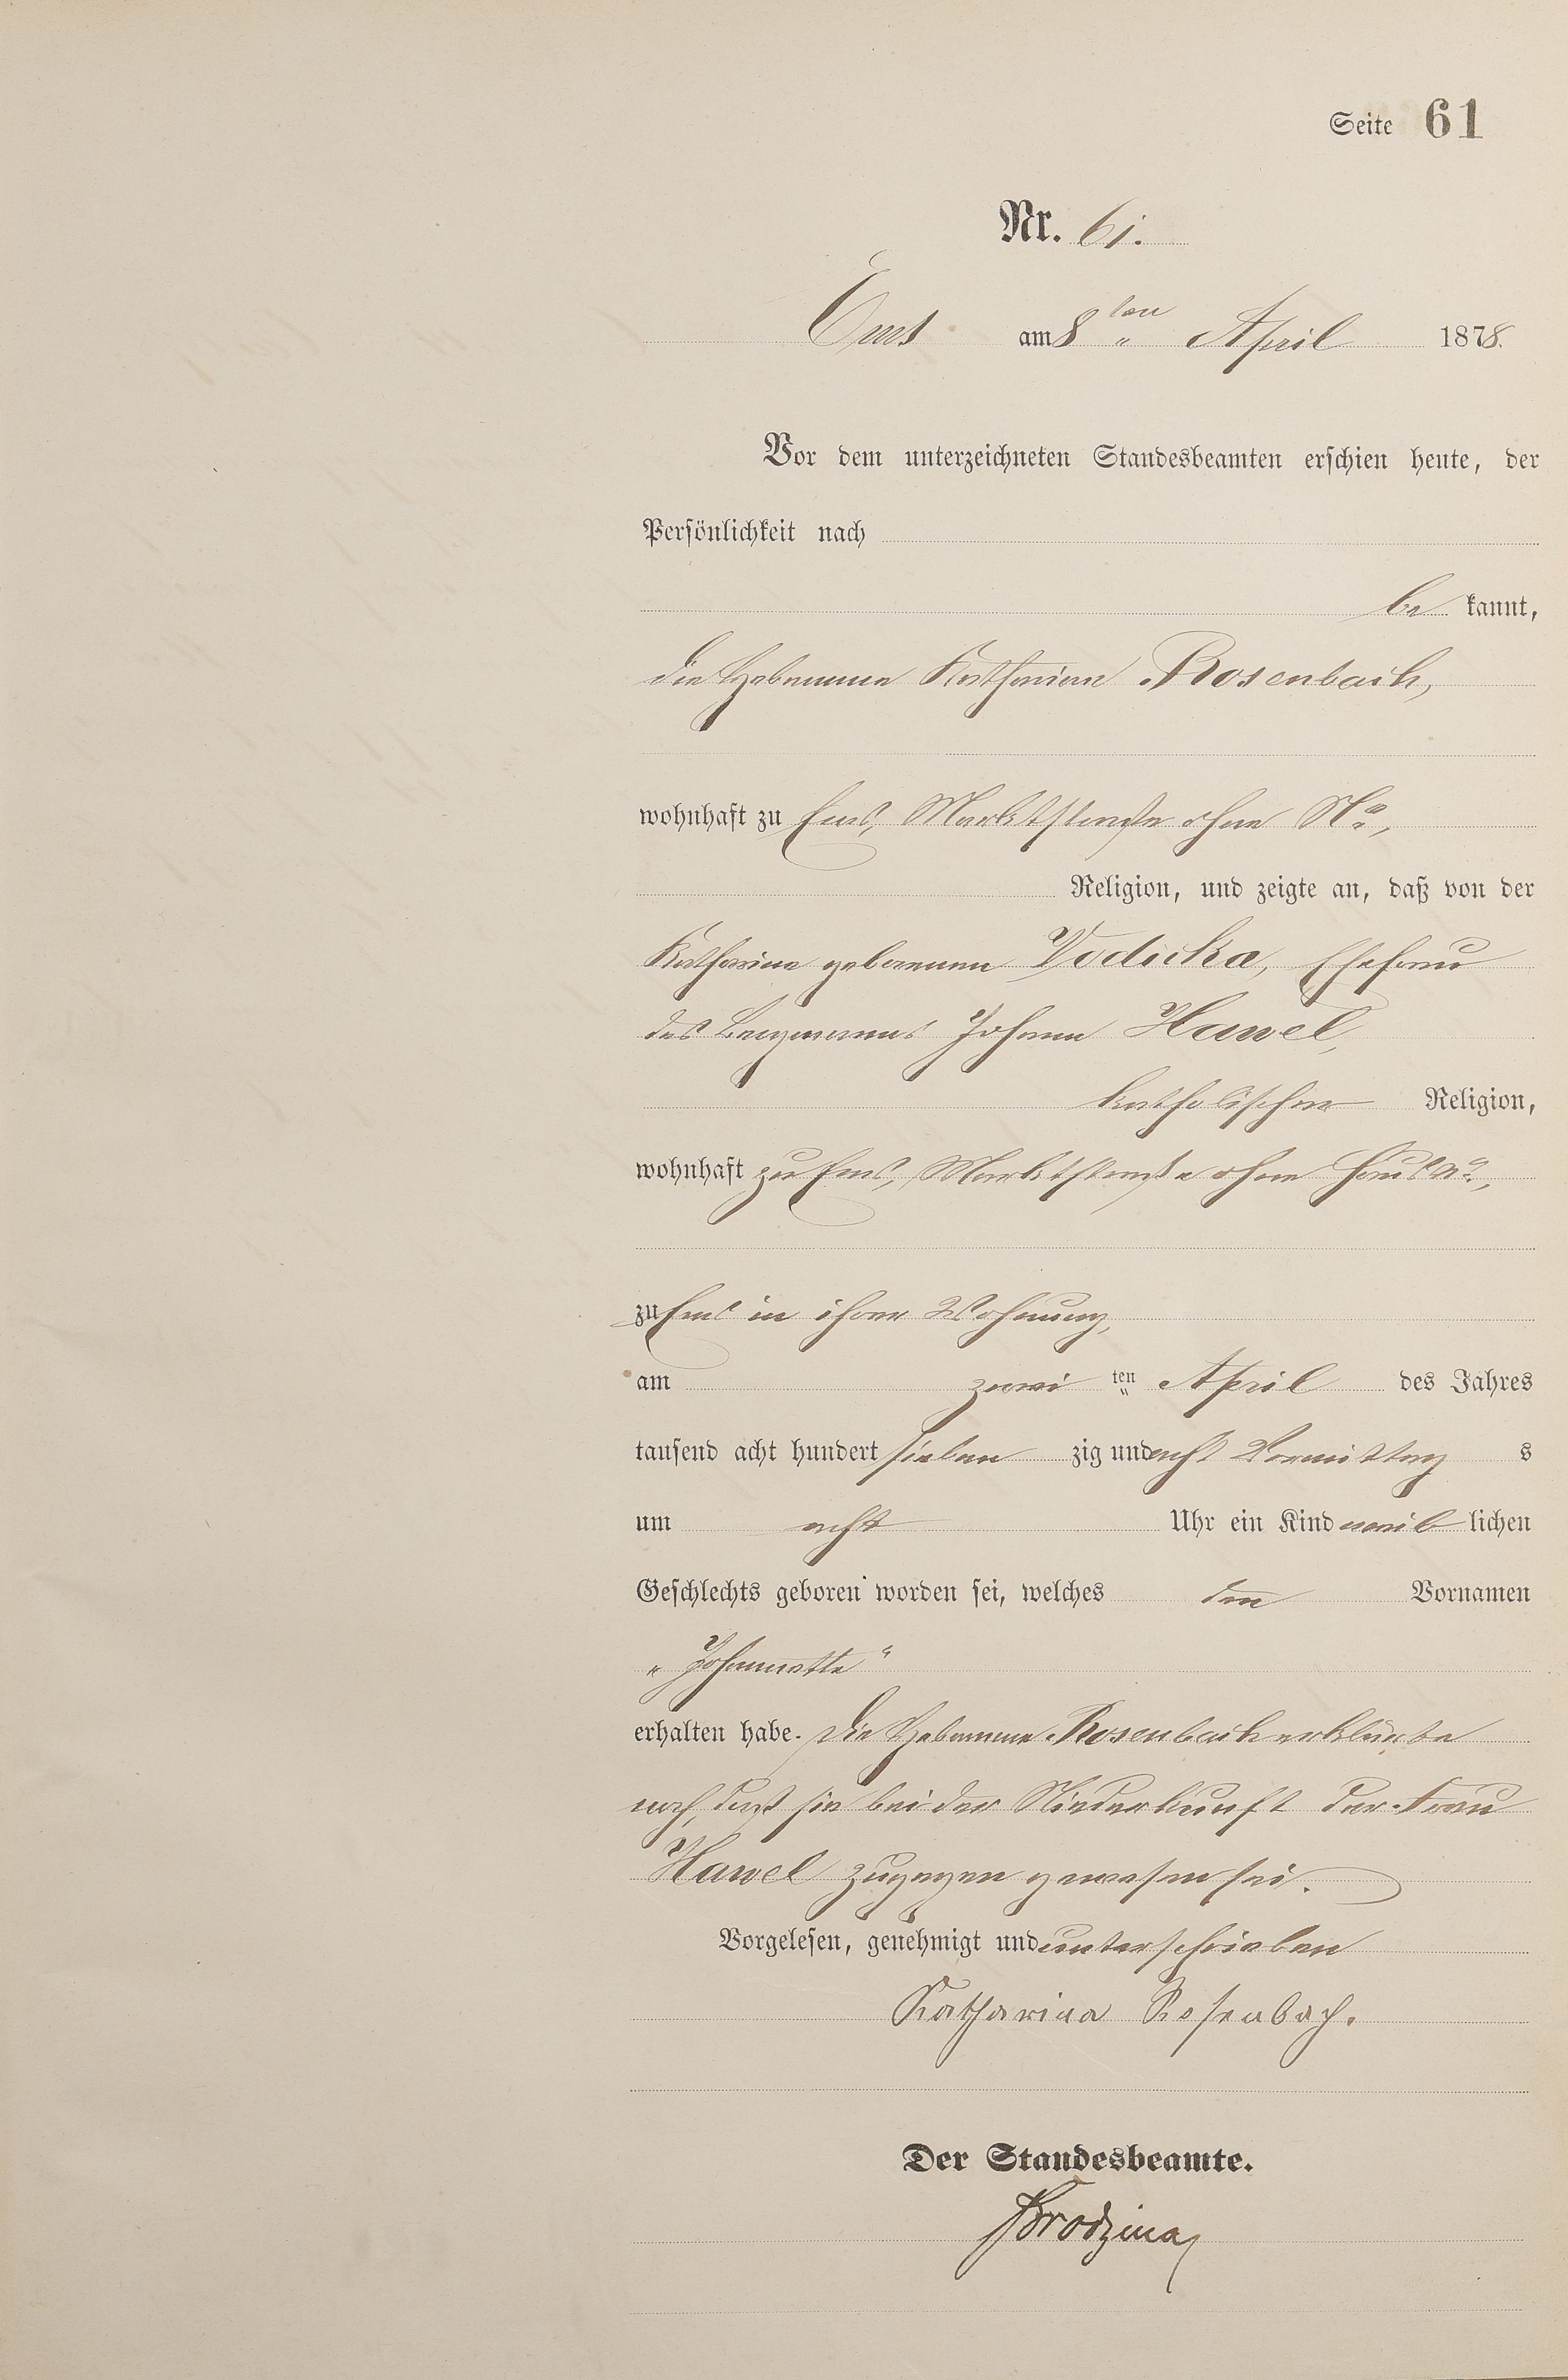 Seite 61
Nr. 61.
Ems am 8ten April 1878.
Vor dem unterzeichneten Standesbeamten erschien heute, der
Persönlichkeit nach
be kannt,
die Hebamme Katharina Rosenbach,
wohnhaft zu Ems, Marktstraße ohne No,
Religion, und zeigte an, daß von der
Katharina geborenen Vodicka, Ehefrau
des Bergmanns Johann Hawel,
katholischer Religion,
wohnhaft zu Ems, Marktstraße ohne Hausno,
zu Ems in ihrer Wohnung,
am zwei ten April des Jahres
tausend acht hundert sieben zig und acht Vormittag s
um acht Uhr ein Kind weib lichen
Geschlechts geboren worden sei, welches den Vornamen
„Johannette“
erhalten habe. Die Hebamme Rosenbach erklärte
noch, daß sie bei der Niederkunft der Frau
Hawel zugegen gewesen sei.
Vorgelesen, genehmigt und unterschrieben
Katharina Rosenbach.
Der Standesbeamte.